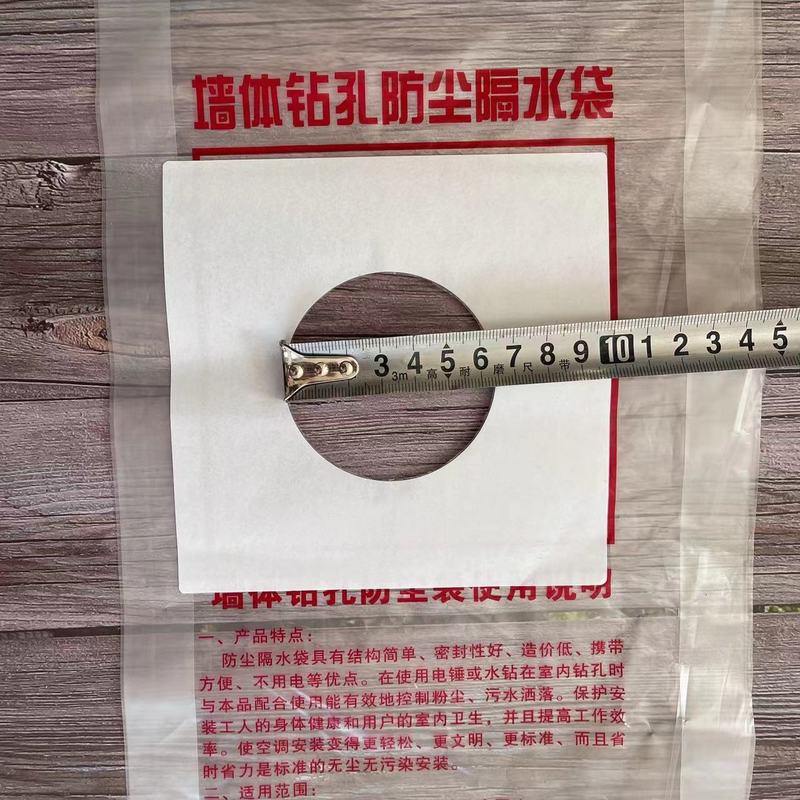 墙体钻孔防尘隔水袋
3 4 5 6 7 8 9 10 1 2 3 4 5
3m 高 耐 磨 尺 带
墙体钻孔防尘袋使用说明
一、产品特点：
防尘隔水袋具有结构简单、密封性好、造价低、携带
方便、不用电等优点。在使用电锤或水钻在室内钻孔时
与本品配合使用能有效地控制粉尘、污水洒落。保护安
装工人的身体健康和用户的室内卫生，并且提高工作效
率。使空调安装变得更轻松、更文明、更标准、而且省
时省力是标准的无尘无污染安装。
二、适用范围：